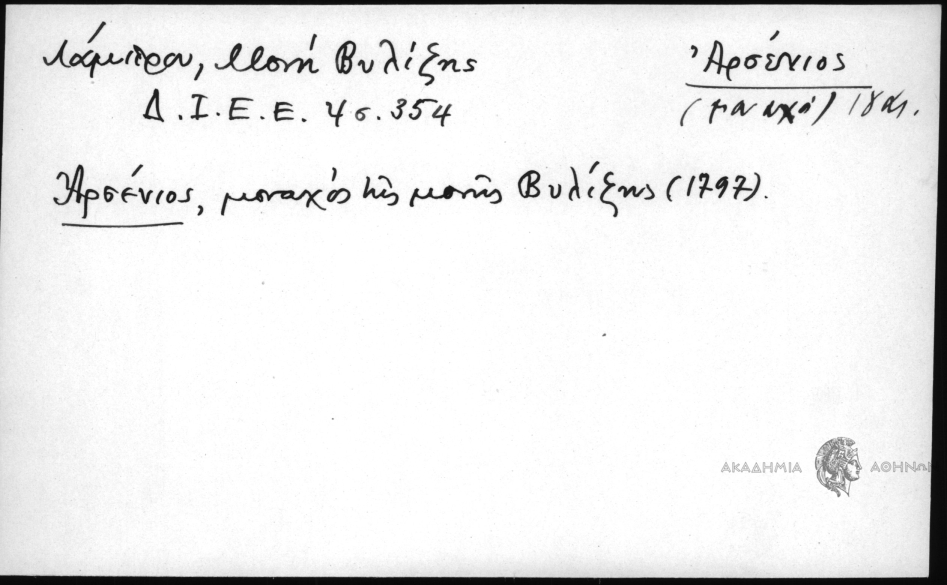 Λάμπρου, Μονή Βυλίζης
Δ.Ι.Ε.Ε. 4 σ. 354
Ἀρσένιος
(μοναχό) 18 αι.
Ἀρσένιος, μοναχός τῆς μονῆς Βυλίζης (1797).
ΑΚΑΔΗΜΙΑ ΑΘΗΝΩΝ